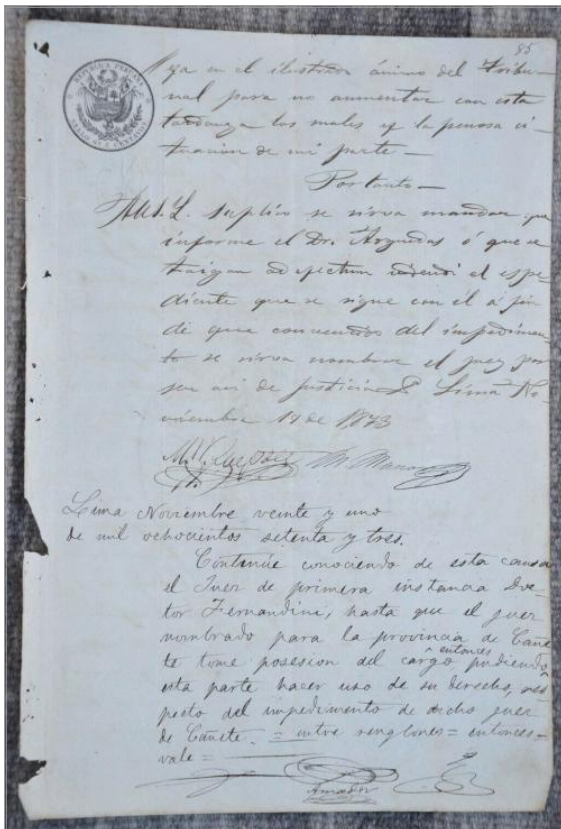 85
REPUBLICA PERUANA
ya en el ilustrado ánimo del Tribu-
nal para no aumentar con esta
tardanza los males y la penosa si-
tuacion de mi parte—
Por tanto—
A U.S.I. suplico se sirva mandar que
informe el Dr. Arguedas ó que se
traigan ad efectum videndi el espe-
diente que se sigue con él a fin
de que convencido del impedimen-
to se sirva nombrar el juez por
ser asi de justicia Lima No-
viembre 14 de 1873
Lima Noviembre veinte y uno
de mil ochocientos setenta y tres.
Continúe conociendo de esta causa
el Juez de primera instancia Doc-
tor Fernandini, hasta que el juez
nombrado para la provincia de Cañe-
te tome posesion del cargo entonces pudiendo
esta parte hacer uso de su derecho, res-
pecto del impedimento de dicho juez
de Cañete. = entre renglones = entonces =
vale =
Amador